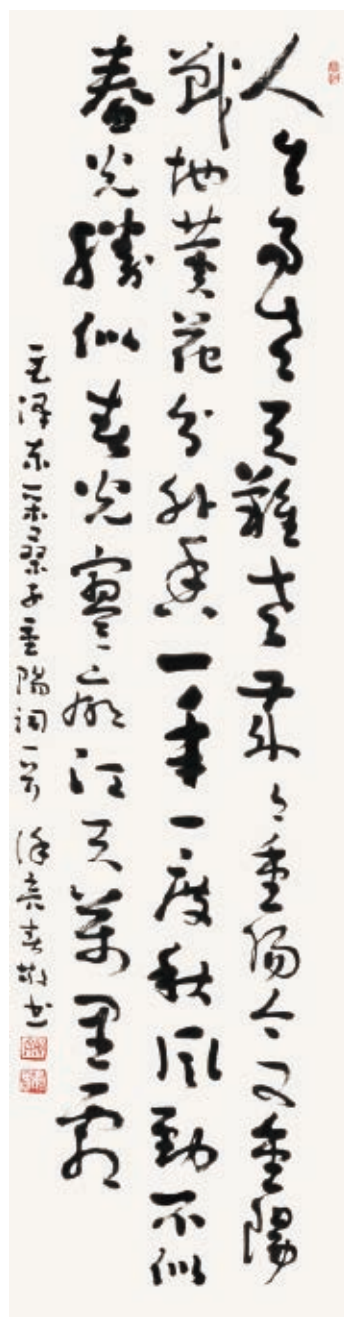 人生易老天難老歲々重陽今又重陽
戰地黄花分外香一年一度秋風勁不似
春光勝似春光寥廓江天萬里霜
毛泽东采桑子重陽詞一首 徐亮书